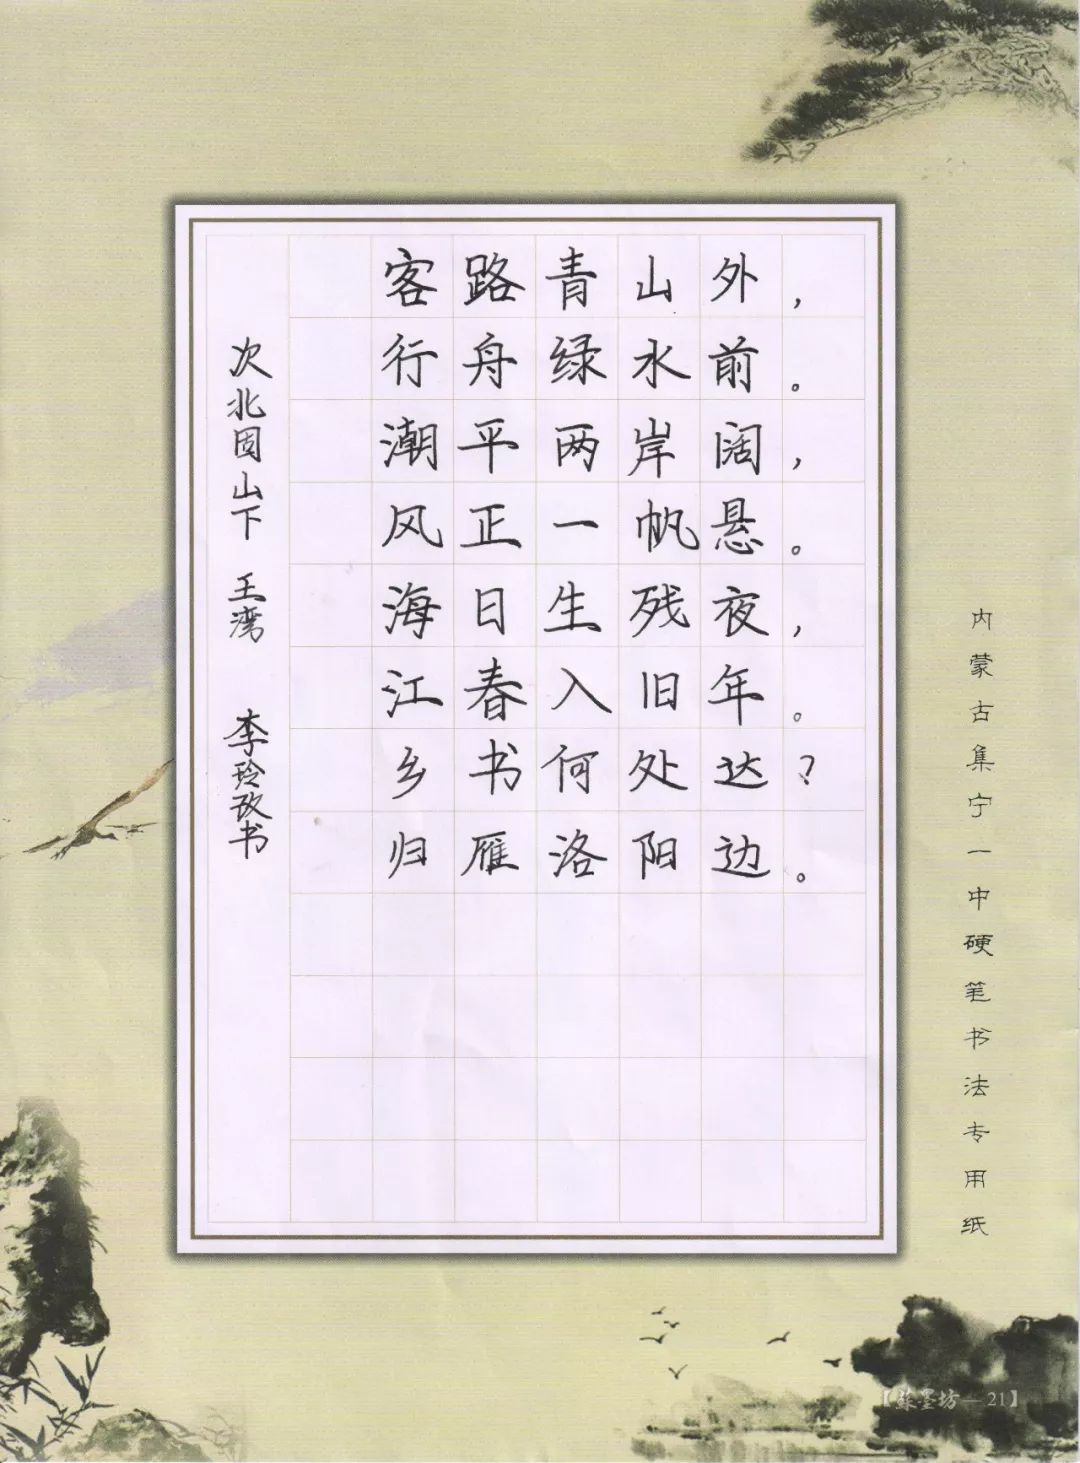 客路青山外，
行舟绿水前。
潮平两岸阔，
风正一帆悬。
海日生残夜，
江春入旧年。
乡书何处达？
归雁洛阳边。
次北固山下 王湾 李玲玫书
内蒙古集宁一中硬笔书法专用纸
【苏墨坊—21】